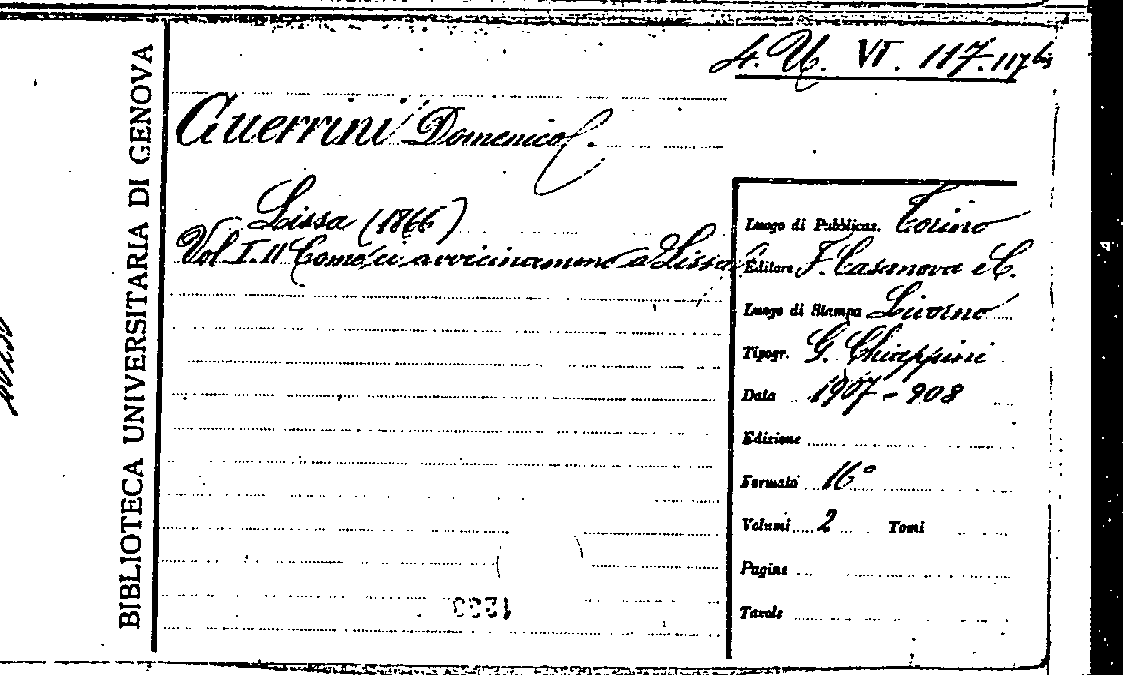 4. U. VI. 117-117 bis
BIBLIOTECA UNIVERSITARIA DI GENOVA
Guerrini Domenico.
Lissa (1866)
Vol I. II Come ci avvicinammo a Lissa
Luogo di Pubblicaz. Torino
Editore F. Casanova e C.
Luogo di Stampa Livorno
Tipogr. G. Chiappini
Data 1907-908
Edizione
Formato 16°
Volumi 2 Tomi
Pagine
Tavole
1233